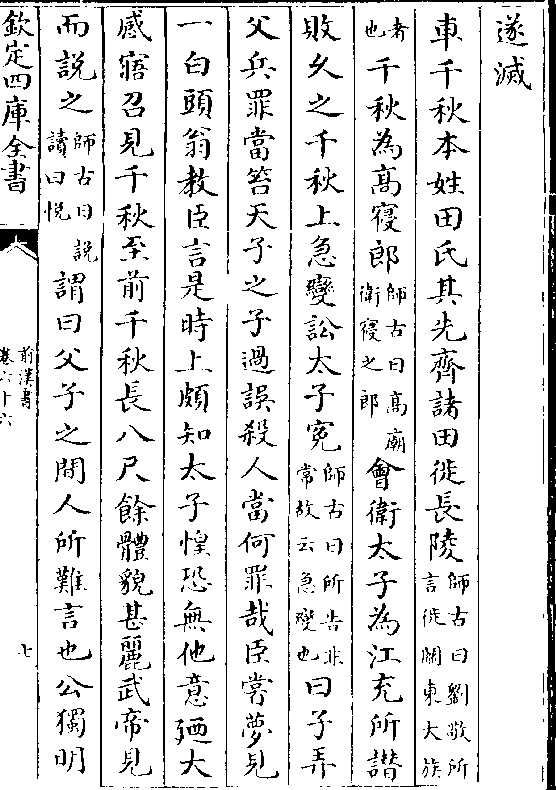 遂滅
車千秋本姓田氏其先齊諸田徙長陵師古曰劉敬所言徙關東大族
者也千秋為高寢郎師古曰高廟衛寢之郎會衛太子為江充所譖
敗乆之千秋上急變訟太子寃師古曰所告非常故云急變也曰子弄
父兵罪當笞天子之子過誤殺人當何罪哉臣嘗夢見
一白頭翁教臣言是時上頗知太子惶恐無他意廼大
感寤召見千秋至前千秋長八尺餘體貌甚麗武帝見
而說之師古曰說讀曰悅謂曰父子之間人所難言也公獨明
欽定四庫全書
前漢書
卷六十六
七